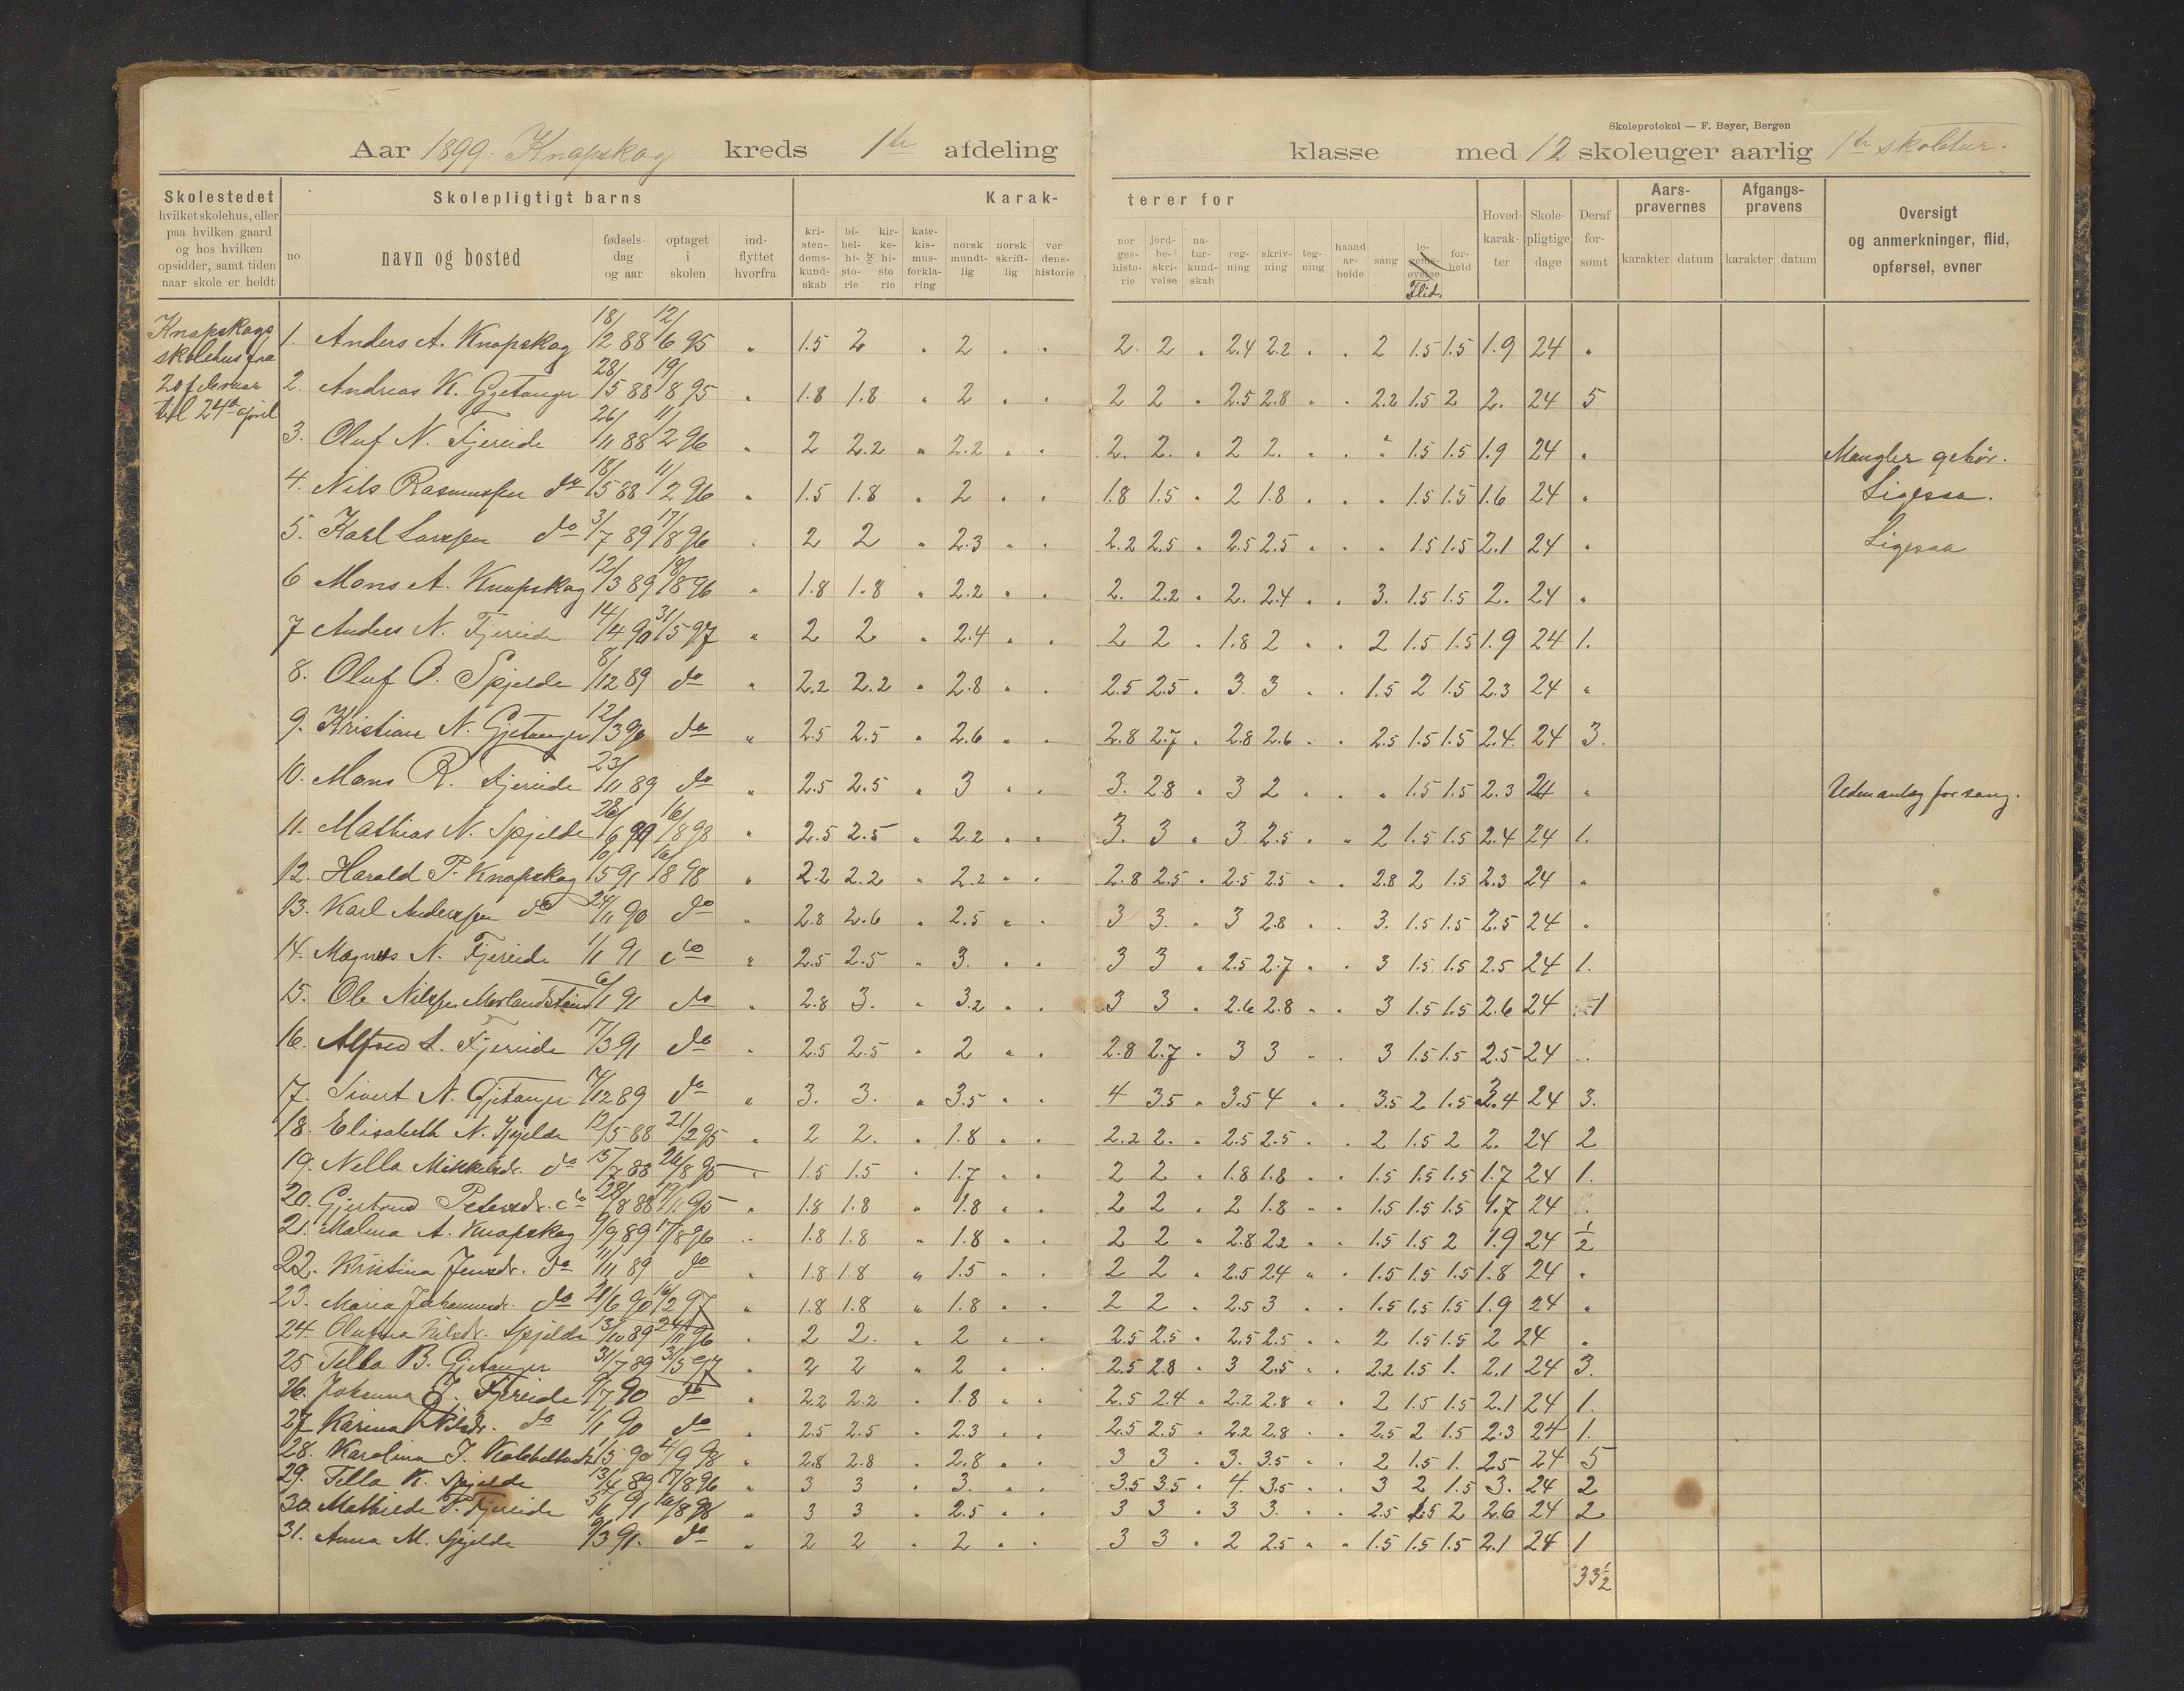 Skoleprotokol — F. Beyer, Bergen
Aar 1899. Knapskog kreds 1ste afdeling klasse med 12 skoleuger aarlig 1ste skoletur.
Skolestedet hvilket skolehus, eller paa hvilken gaard og hos hvilken opsidder, samt tiden naar skole er holdt
Skolepligtigt barns
no. navn og bosted fødselsdag og aar optaget i skolen indflyttet hvorfra
Karakterer for
kristendomskundskab bibelhistorie og kirkehistorie katekismusforklaring norsk mundtlig norsk skriftlig verdenshistorie norgeshistorie jordbeskrivelse naturkundskab regning skrivning tegning haandarbeide sang legemsøvelse Flid. forhold
Hovedkarakter Skolepligtige dage Deraf forsømt
Aarsprøvernes karakter datum
Afgangsprøvens karakter datum
Oversigt og anmerkninger, flid, opførsel, evner
Knapskogs
skolehus fra
20 februar
til 24de april
1. Anders A. Knapskog 18/12 88 12/6 95 " 1.5 2 " 2 " " 2. 2 " 2.4 2.2 " " 2 1.5 1.5 1.9 24 "
2. Andreas K. Gjetanger 28/5 88 19/8 95 " 1.8 1.8 " 2 " " 2 2 " 2.5 2.8 " " 2.2 1.5 2 2. 24 5
3. Oluf N. Fjereide 26/11 88 11/2 96 " 2 2.2 " 2.2 " " 2. 2. " 2 2. " " " 1.5 1.5 1.9 24 " Mangler gehør.
4. Nils Rasmussen do 18/5 88 11/2 96 " 1.5 1.8 " 2 " " 1.8 1.5 " 2 1.8 " " " 1.5 1.5 1.6 24 " Ligesaa.
5. Karl Larssen do 3/7 89 17/8 96 " 2 2 " 2.3 " " 2.2 2.5 " 2.5 2.5 " " " 1.5 1.5 2.1 24 " Ligesaa
6 Mons A. Knapskog 12/3 89 18/8 96 " 1.8 1.8 " 2.2 " " 2. 2.2 " 2. 2.4 " " 3. 1.5 1.5 2. 24 "
7 Anders N. Fjereide 14/4 90 31/5 97 " 2 2 " 2.4 " " 2 2 " 1.8 2 " " 2 1.5 1.5 1.9 24 1.
8. Oluf O. Spjelde 8/12 89 do " 2.2 2.2 " 2.8 " " 2.5 2.5 " 3. 3 " " 1.5 2 1.5 2.3 24 "
9. Kristian N. Gjetanger 12/3 90 do " 2.5 2.5 " 2.6 " " 2.8 2.7 " 2.8 2.6 " " 2.5 1.5 1.5 2.4. 24 3.
10. Mons R. Fjereide 23/11 89 do " 2.5 2.5 " 3 " " 3. 2.8 " 3 2 " " " 1.5 1.5 2.3 24 " Uden anlæg for sang.
11. Mathias N. Spjelde 28/6 16/8 98 " 2.5 2.5 " 2.2 " " 3. 3 " 3 2.5 " " 2 1.5 1.5 2.4 24 1.
12. Harald P. Knapskog 10/5 91 16/8 98 " 2.2 2.2 " 2.2 " " 2.8 2.5 " 2.5 2.5 " " 2.8 2 1.5 2.3 24 "
13. Karl Anderssen do 24/11 90 do " 2.8 2.6 " 2.5 " " 3 3. " 3 2.8 " " 3. 1.5 1.5 2.5 24 "
14. Magnus N. Fjereide 1/1 91 do " 2.5 2.5 " 3. " " 3 3 " 2.5 2.7 " " 3 1.5 1.5 2.5 24 1.
15. Ole Nilssen 6/1 91 do " 2.8 3. " 3.2 " " 3 3 " 2.6 2.8 " " 3 1.5 1.5 2.6 24 1
16. Alfred L. Fjereide 17/3 91 do " 2.5 2.5 " 2 " " 2.8 2.7 " 3 3 " " 3 1.5 1.5 2.5 24 "
17. Sivert N. Gjetanger 12 89 do " 3. 3. " 3.5 " " 4 3.5 " 3.5 4 " " 3.5 2 1.5 3.4 24 3.
18. Elisabeth N. Spjelde 12/5 88 21/2 95 " 2 2. " 1.8 " " 2.2 2. " 2.5 2.5 " " 2 1.5 2 2. 24 2
19. Nella Mikkelsdr. do 15/7 88 26/8 95 " 1.5 1.5 " 1.7 " " 2 2 " 1.8 1.8 " " 1.5 1.5 1.5 1.7 24 1.
20. Gjertrud Petersdr. do 28/8 88 19/11 95 " 1.8 1.8 " 1.8 " " 2 2 " 2 1.8 " " 1.5 1.5 1.5 1.7 24 "
21. Malena A. Knapskog 9/9 89 17/8 96 " 1.8 1.8 " 1.8 " " 2 2 " 2.8 2.2 " " 1.5 1.5 2 1.9 24 1/2
22. Kristina Jensdr. do 11/11 89 do " 1.8 1.8 " 1.5 " " 2 2 " 2.5 2.4 " " 1.5 1.5 1.5 1.8 24 "
23. Maria Johannesdr. do 21/6 90 16/2 97 " 1.8 1.8 " 1.8 " " 2 2 " 2.5 3 " " 1.5 1.5 1.5 1.9 24 "
24. Olufina Nilsdr. Spjelde 13/10 89 24/11 96 " 2 2. " 2 " " 2.5 2.5 " 2.5 2.5 " " 2 1.5 1.5 2 24 "
25 Tella B. Gjetanger 31/7 89 31/5 97 " 2 2 " 2 " " 2.5 2.8 " 3 2.5 " " 2.2 1.5 1. 2.1 24 3.
26. Johanna J. Fjereide 9/7 90 do " 2.2 2.2 " 1.8 " " 2.5 2.4 " 2.2 2.8 " " 2 1.5 1.5 2.1 24 1.
27 Karina Nilsdr. do 1/1 90 do " 2.5 2.5 " 2.3 " " 2.5 2.5 " 2.2 2.8 " " 2.5 2 1.5 2.3 24 1.
28. Karolina J. 1/5 90 4/9 98 " 2.8 2.8 " 2.8 " " 3 3 " 3. 3.5 " " 2 1.5 1. 2.5 24 5
29. Tella K. Spjelde 13/4 89 17/8 96 " 3 3 " 3. " " 3.5 3.5 " 4. 3.5 " " 3 2 1.5 3. 24 2
30. Mathilde P. Fjereide 5/6 91 16/8 98 " 3 3 " 2.5 " " 3 3 " 3 3. " " 2.5 1.5 2 2.6 24 2
31. Anna M. Spjelde 9/3 91. do " 2 2 " 2 " " 3 3 " 2 2.5 " " 1.5 1.5 1.5 2.1 24 1
33 1/2